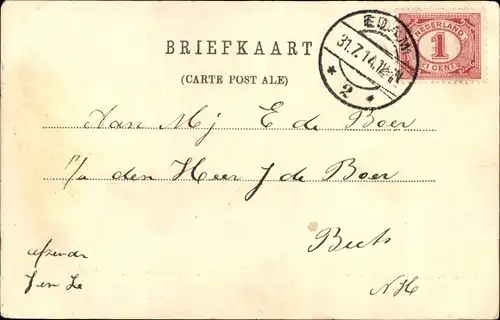 BRIEFKAART
(CARTE POST ALE)
EDAM
31.7.14.12-1N
2
NEDERLAND
1
CENT
Aan Mej E de Boer
p/a den Heer J de Boer
Beets
NH
afzender
J en